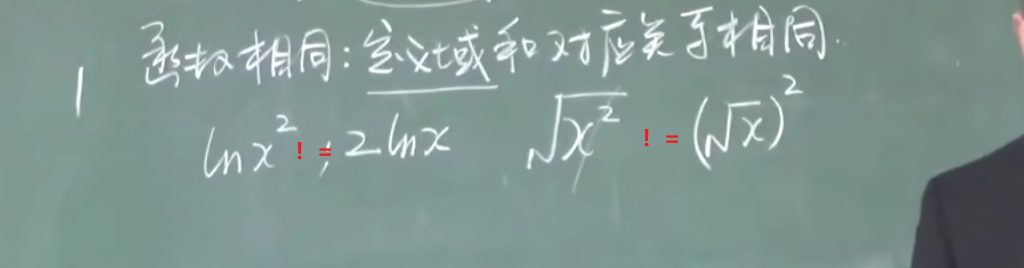 函数相同:定义域和对应关系相同.
ln x² != ; 2 ln x √x² != (√x)²